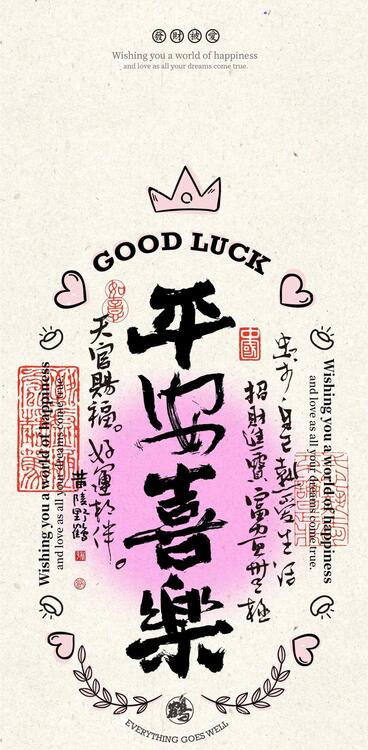 發財被愛
Wishing you a world of happiness
and love as all your dreams come true.
GOOD LUCK
平安喜樂
如意
中國
忠於自己熱愛生活
招財進寶富可卅之極
天官賜福。好運相伴。
黄陵野鶴
Wishing you a world of happiness
and love as all your dreams come true.
Wishing you a world of happiness
and love as all your dreams come true.
鶴
EVERYTHING GOES WELL